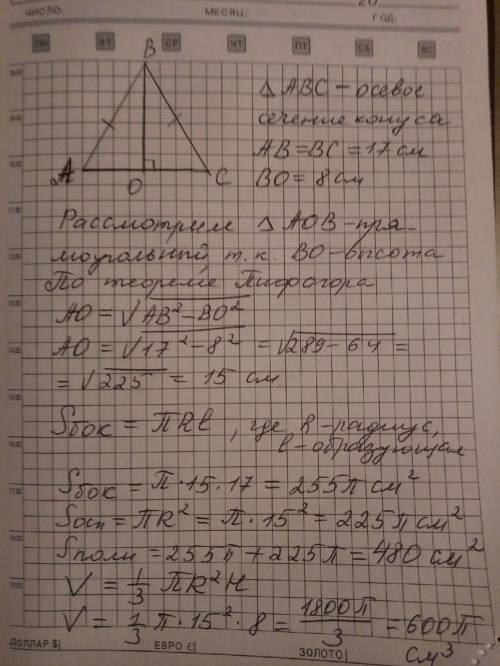 20
ЧИСЛО: МЕСЯЦ: ГОД:
ПН ВТ СР ЧТ ПТ СБ ВС
B
A O C
Δ ABC – осевое
сечение конуса
AB = BC = 17 см
BO = 8 см
Рассмотрим Δ AOB – пря-
моугольный т.к. BO – высота
По теореме Пифагора
AO = √AB² – BO²
AO = √17² – 8² = √289 – 64 =
= √225 = 15 см.
Sбок = πRl, где R – радиус,
l – образующая
Sбок = π · 15 · 17 = 255π см²
Sосн = πR² = π · 15² = 225π см²
Sполн = 255π + 225π = 480 см²
V = 1/3 πR²H
V = 1/3 π · 15² · 8 = 1800π/3 = 600π
см³
ДОЛЛАР $| ЕВРО €| ЗОЛОТО|